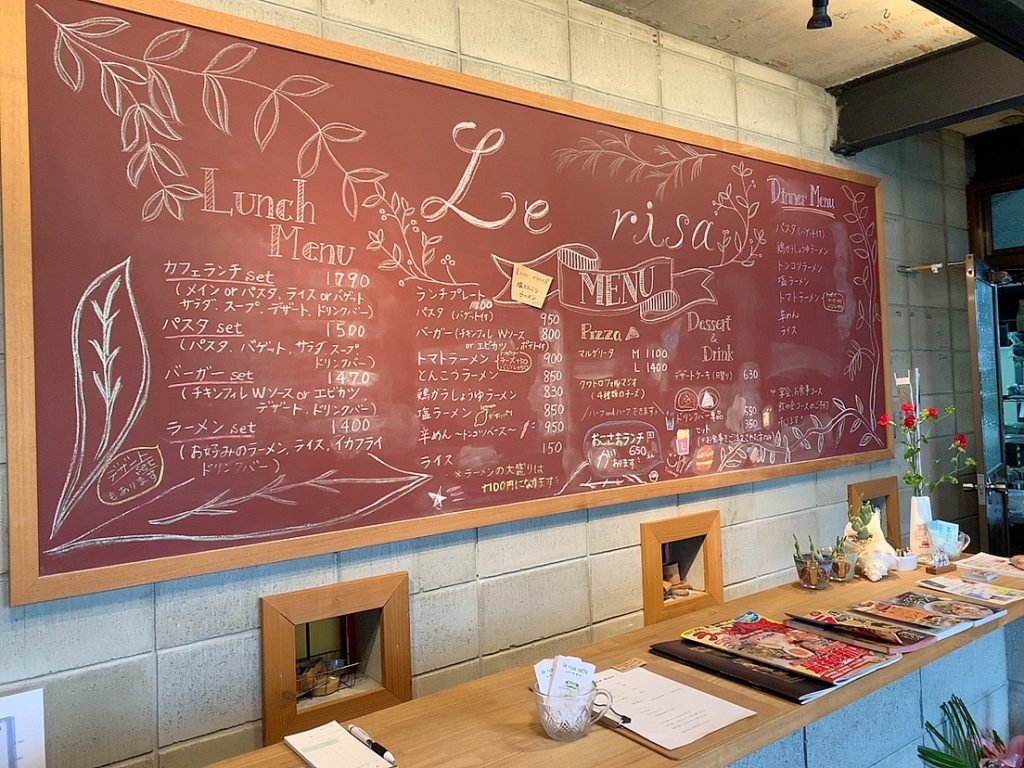 Le risa
MENU
Lunch
Menu
カフェランチ set 1790
(メイン or パスタ、ライス or バゲット
サラダ、スープ、デザート、ドリンクバー)
パスタ set 1500
(パスタ、バゲット、サラダ、スープ
ドリンクバー)
バーガー set 1470
(チキンフィレ Wソース or エビカツ
デザート、ドリンクバー)
ラーメン set 1400
(お好みのラーメン、ライス、イカフライ
ドリンクバー)
デザート
もあります
ランチプレート
パスタ(バゲット付) 950
バーガー(チキンフィレ Wソース 800
or エビカツ、ポテト付)
トマトラーメン 900
とんこつラーメン 850
鶏ガラしょうゆラーメン 830
塩ラーメン 850
辛めん 〜トンコツベース〜 950
ライス 150
※ラーメンの大盛りは
+100円になります
New menu
塩とんこつ
ラーメン
Pizza
マルゲリータ M 1100
L 1400
クワトロフォルマジオ
(4種類のチーズ)
ハーフandハーフできます
おこさまランチ
650
あります
Dessert
&
Drink
デザートケーキ(日替り) 630
ドリンクバー 単品 550
セット 350
Dinner Menu
パスタ(バゲット付)
鶏ガラしょうゆラーメン
トンコツラーメン
塩ラーメン
トマトラーメン
辛めん
ライス